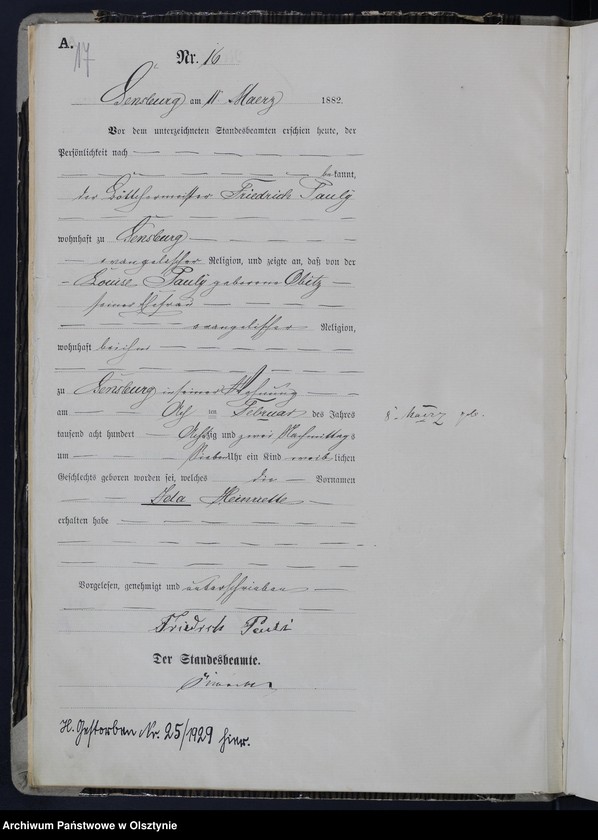 A.
17
Nr. 16
Sensburg am 11 Maerz 1882.
Vor dem unterzeichneten Standesbeamten erschien heute, der
Persönlichkeit nach
bekannt,
der Böttchermeister Friedrich Pauly
wohnhaft zu Sensburg
evangelischer Religion, und zeigte an, daß von der
Louise Pauly geborene Obitz
seiner Ehefrau
evangelischer Religion,
wohnhaft bei ihm
zu Sensburg in seiner Wohnung
am Februar des Jahres
tausend acht hundert Achtzig und zwei Nachmittags
um Sieben Uhr ein Kind weiblichen
Geschlechts geboren worden sei, welches die Vornamen
Ida Heinriette
erhalten habe
Vorgelesen, genehmigt und unterschrieben
Friedrich Pauli
Der Standesbeamte.
H. Gestorben Nr. 25/1929 hier.
8. März
Archiwum Państwowe w Olsztynie